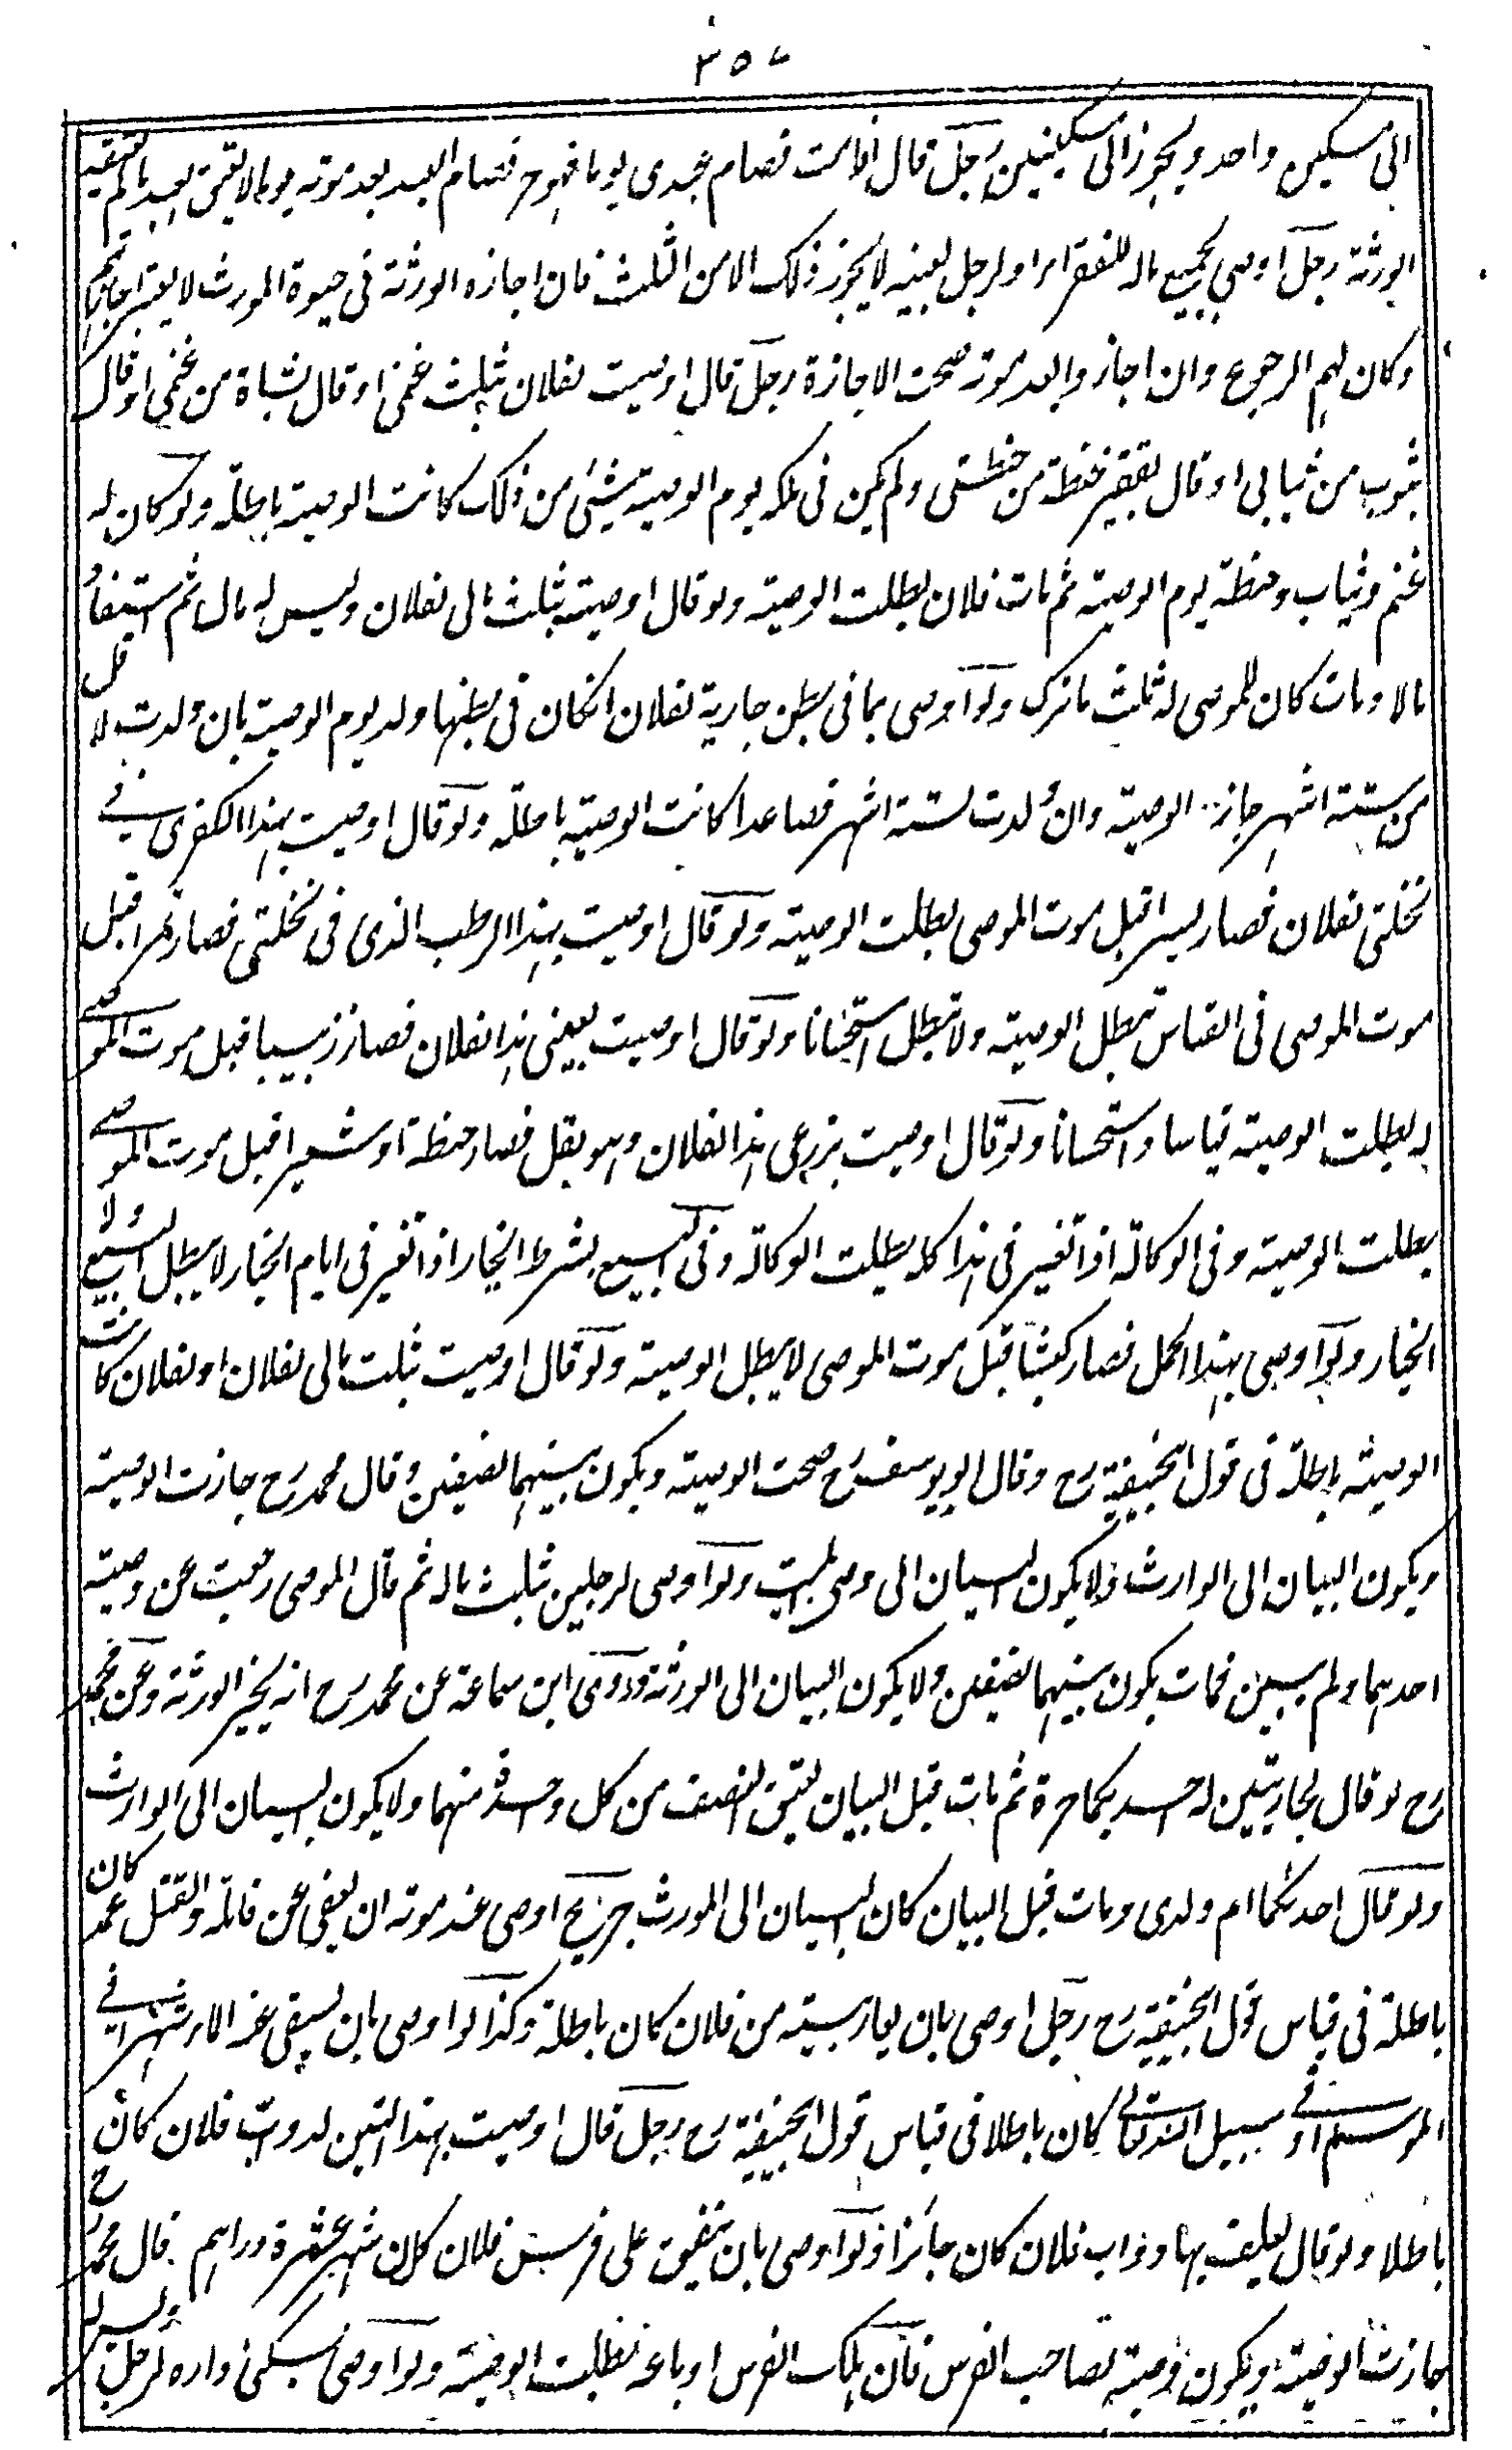 ٣٥٧
الى مسكين واحد ويجوز الى مسكينين رجل قال اذا مت فصام عبدى يوما فهو حر فصام العبد بعد موته يوما لا يعتق العبد ما لم يعتقه
الورثة رجل اوصى بجميع ماله للفقراء او لرجل بعينه لا يجوز ذلك الا من الثلث فان اجازه الورثة فى حيوة المورث لا يعتبر اجازتهم
وكان لهم الرجوع وان اجازوا بعد موته صحت الاجازة رجل قال اوصيت لفلان بثلث غنمى او قال بشاة من غنمى او قال
بثوب من ثيابى او قال بقفيز حنطة من حنطتى ولم يكن فى ملكه يوم الوصية شئ من ذلك كانت الوصية باطلة ولو كان له
غنم وثياب وحنطة يوم الوصية ثم مات فلان بطلت الوصية ولو قال اوصيت بثلث مالى لفلان وليس له مال ثم استفاد
مالا ومات كان للموصى له ثلث ما ترك ولو اوصى بما فى بطن جارية لفلان انكان فى بطنها ولد يوم الوصية بان ولدت لاقل
من ستة اشهر جاز الوصية وان ولدت لستة اشهر فصاعدا كانت الوصية باطلة ولو قال اوصيت بهذا الكفرى فى
نخلتى لفلان فصار بسرا قبل موت الموصى بطلت الوصية ولو قال اوصيت بهذا الرطب الذى فى نخلتى فصار تمرا قبل
موت الموصى فى القياس تبطل الوصية ولا تبطل استحسانا ولو قال اوصيت بعنبى هذا لفلان فصار زبيبا قبل موت الموصى
له بطلت الوصية قياسا واستحسانا ولو قال اوصيت بزرعى هذا لفلان وهو بقل فصار حنطة او شعيرا قبل موت الموصى
بطلت الوصية وفى الوكالة اذا تغير فى هذا كله بطلت الوكالة وفى البيع بشرط الخيار اذا تغير فى ايام الخيار لا يبطل البيع ولا
الخيار ولو اوصى بهذا الحمل فصار كبشا قبل موت الموصى لا يبطل الوصية ولو قال اوصيت بثلث مالى لفلان او لفلان كانت
الوصية باطلة فى قول ابيحنيفة رح وقال ابو يوسف رح صحت الوصية ويكون بينهما نصفين وقال محمد رح جازت الوصية
ويكون البيان الى الوارث ولا يكون البيان الى وصى الميت ولو اوصى لرجلين بثلث ماله ثم قال الموصى رجعت عن وصية
احدهما ولم يبين فمات يكون بينهما نصفين ولا يكون البيان الى الورثة وروى ابن سماعة عن محمد رح انه يخير الورثة وعن محمد
رح لو قال لجاريتين له احديكما حرة ثم مات قبل البيان يعتق النصف من كل واحدة منهما ولا يكون البيان الى الوارث
ولو قال احدكما ام ولدى ومات قبل البيان كان البيان الى المورث جريح اوصى عند موته ان يعفى عن قاتله والقتل عمد كان
باطلة فى قياس قول ابيحنيفة رح رجل اوصى بان يعار بيته من فلان كان باطلة وكذا لو اوصى بان يسقى عنه الماء شهرا فى
الموسم او فى سبيل الله تعالى كان باطلا فى قياس قول ابيحنيفة رح رجل قال اوصيت بهذا التبن لدواب فلان كان
باطلا ولو قال يعلف بها دواب فلان كان جائزا ولو اوصى بان ينفق على فرس فلان كل شهر عشرة دراهم قال محمد رح
جازت الوصية ويكون وصية لصاحب الفرس فان هلك الفرس او باعه بطلت الوصية ولو اوصى بسكنى داره لرجل وليس له